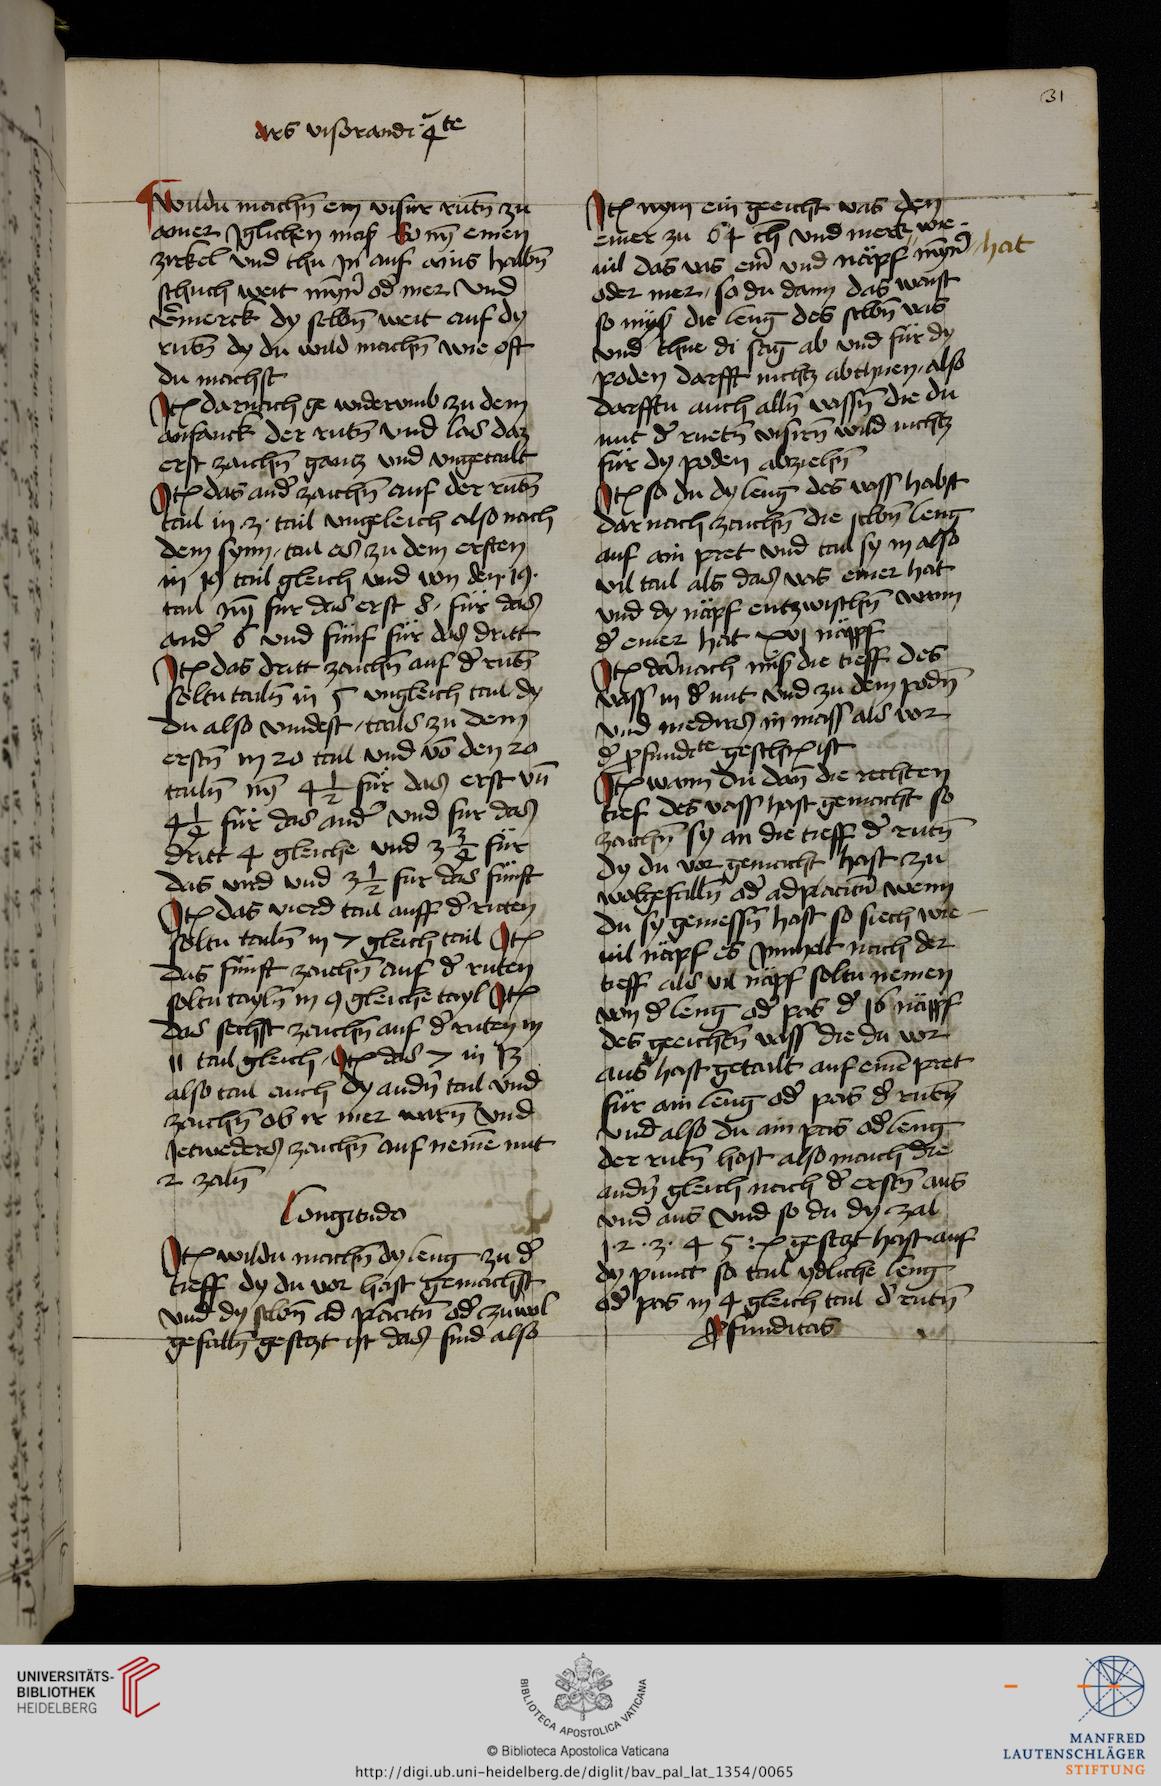 31
ars visorandi q̄te
Wildu machn̄ ein visir rutn̄ zu
ainer Iglichen mas So nȳ einen
zirkel und thu In auf ains halbn̄
schuch weit mȳn̄ od̄ mer Und
v̄merck dy selbn̄ weit auf dy
rutn̄ dy du wild machn̄ wie oft
du machst
Itē darnach ge widerumb zu dem
anfanck der rutn̄ und las daz
erst zaichn̄ gantz und ungetailt
Itē das and̄ zaichn̄ auf der rutn̄
tail in 3 tail ungeleich also nach
dem synn tail es zu dem ersten
in 19 tail gleich und von den 19
tail nȳ fur das erst 8 für das
and̄ 6 und fünf für das dritt
Itē das dritt zaichn̄ auf d̄ rutn̄
soltu tailn̄ in 5 ungleich tail dy
du also vindest tails zu dem
erstn̄ in 20 tail und vō den 20
tailn̄ nȳ 4 1/2 für das erst un̄
4 1/4 für das and̄ und fur das
dritt 4 gleiche und 3 3/4 für
das vird und 3 1/2 fur das fünft
Itē das vierd tail auff d̄ ruten
soltu tailn̄ in 7 gleich tail Itē
das fünft zaichn̄ auf d̄ ruten
soltu tayln̄ in 9 gleiche tayl Itē
das sechst zaichn̄ auf d̄ ruten in
11 tail gleich Itē das 7 in 13
also tail auch dy andn̄ tail und
zaichn̄ ob ir mer warn̄ Und
Jetweders zaichn̄ auf neme mit
2 zaln̄
Longitudo
Itē wildu machn̄ dy leng zu d̄
tieff dy du vor hast gemachst
und dy selbn̄ ad placitū od̄ zu wol
gefalln̄ gesetzt ist das sind also
Itē nym ein geeicht vas den
eimer zu 64 und merck wie
vil das vas eim̄ und näpf mȳn̄ hat
oder mer so du dann das waist
so mys die leng des selbn̄ vas
und thue di sag ab und für dy
poden darfft nichtz abthuen also
darfftu auch alln̄ vassn̄ die du
mit d̄ ruetn̄ visirn̄ wild nichtz
für dy poden abziehn̄
Itē so du dy leng des vass habst
dar nach zaichn̄ die selbn̄ leng
auf ain pret und tail sy in also
vil tail als das vas eimer hat
und dy näpf entzwischn̄ wann
d̄ eimer hat xvj näpf
Itē dānach mis die tieff des
vass in d̄ mit und zu dem podn̄
und medirs in mass als vor
d̄ ꝓfundite geschr ist
Itē wann du dan̄ die rechten
tief des vass hast gemacht so
zaichn̄ sy an die tieff d̄ rutn̄
dy du vor gemacht hast zu
wolgefalln̄ od̄ ad placitū wenn
du sy gemessn̄ hast so siech wie
vil näpf es Innhelt nach der
tieff als vil näpf soltu nemen
von d̄ leng od̄ pas d̄ 16 näpf
des geeichtn̄ vass die du vor
aus hast getailt auf eine pret
für ain leng od̄ pas d̄ rutn̄
und also du ain pas od̄ leng
der rutn̄ hast also mach die
andn̄ gleich nach d̄ erstn̄ aus
und aus Und so du dy zal
1 · 2 · 3 · 4 5 gesetzt hast auf
dy punct so tail ydliche leng
od̄ pas in 4 gleich tail d̄ rutn̄
ꝓfunditas
UNIVERSITÄTS-
BIBLIOTHEK
HEIDELBERG
BIBLIOTECA APOSTOLICA VATICANA
© Biblioteca Apostolica Vaticana
http://digi.ub.uni-heidelberg.de/diglit/bav_pal_lat_1354/0065
MANFRED
LAUTENSCHLÄGER
STIFTUNG